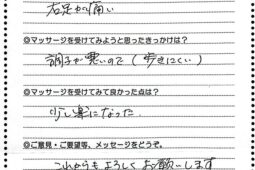 右足が痛い
◎マッサージを受けてみようと思ったきっかけは?
調子が悪いので(歩きにくい)
◎マッサージを受けてみて良かった点は?
少し楽になった
◎ご意見・ご要望等、メッセージをどうぞ。
これからもよろしくお願いします